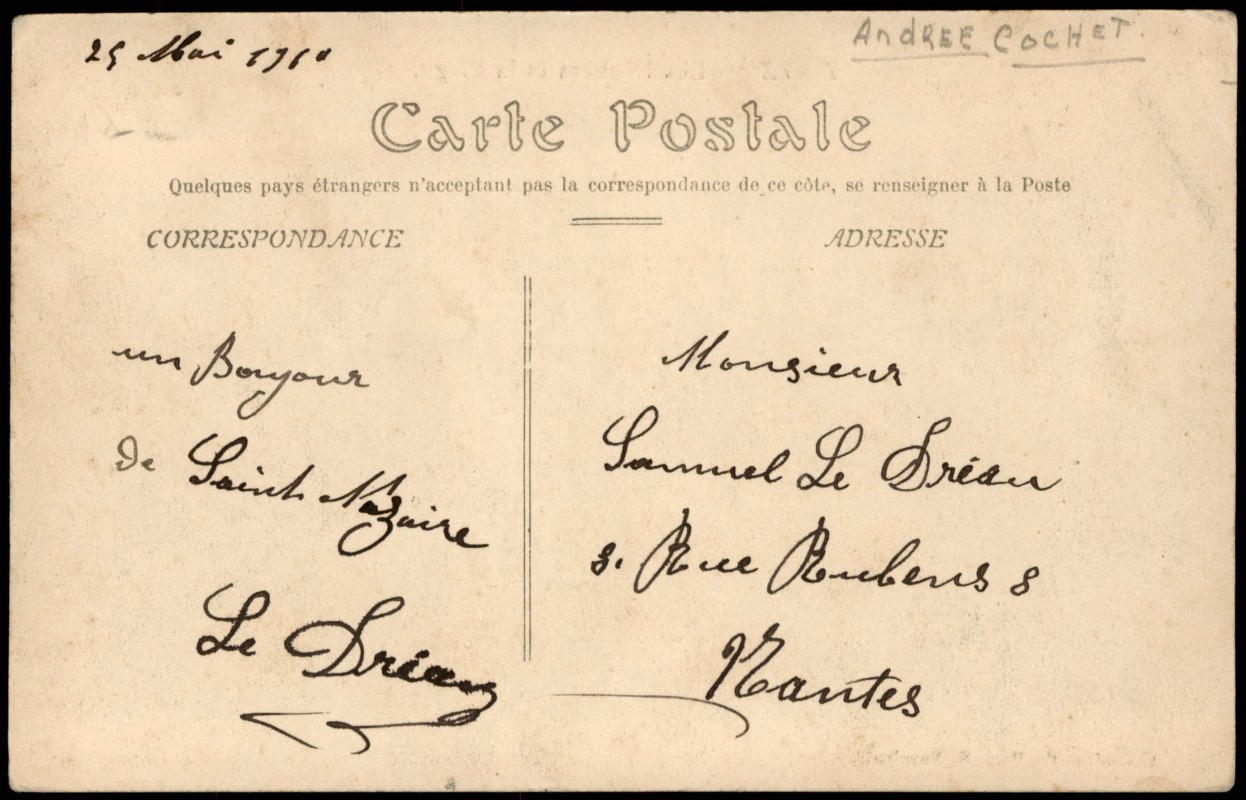 25 Mai 1910
ANDREE COCHET.
Carte Postale
Quelques pays étrangers n'acceptant pas la correspondance de ce côté, se renseigner à la Poste
CORRESPONDANCE
ADRESSE
un Bonjour
de Saint Nazaire
Le Dréau
Monsieur
Samuel Le Dréau
8. Rue Rubens 8
Nantes